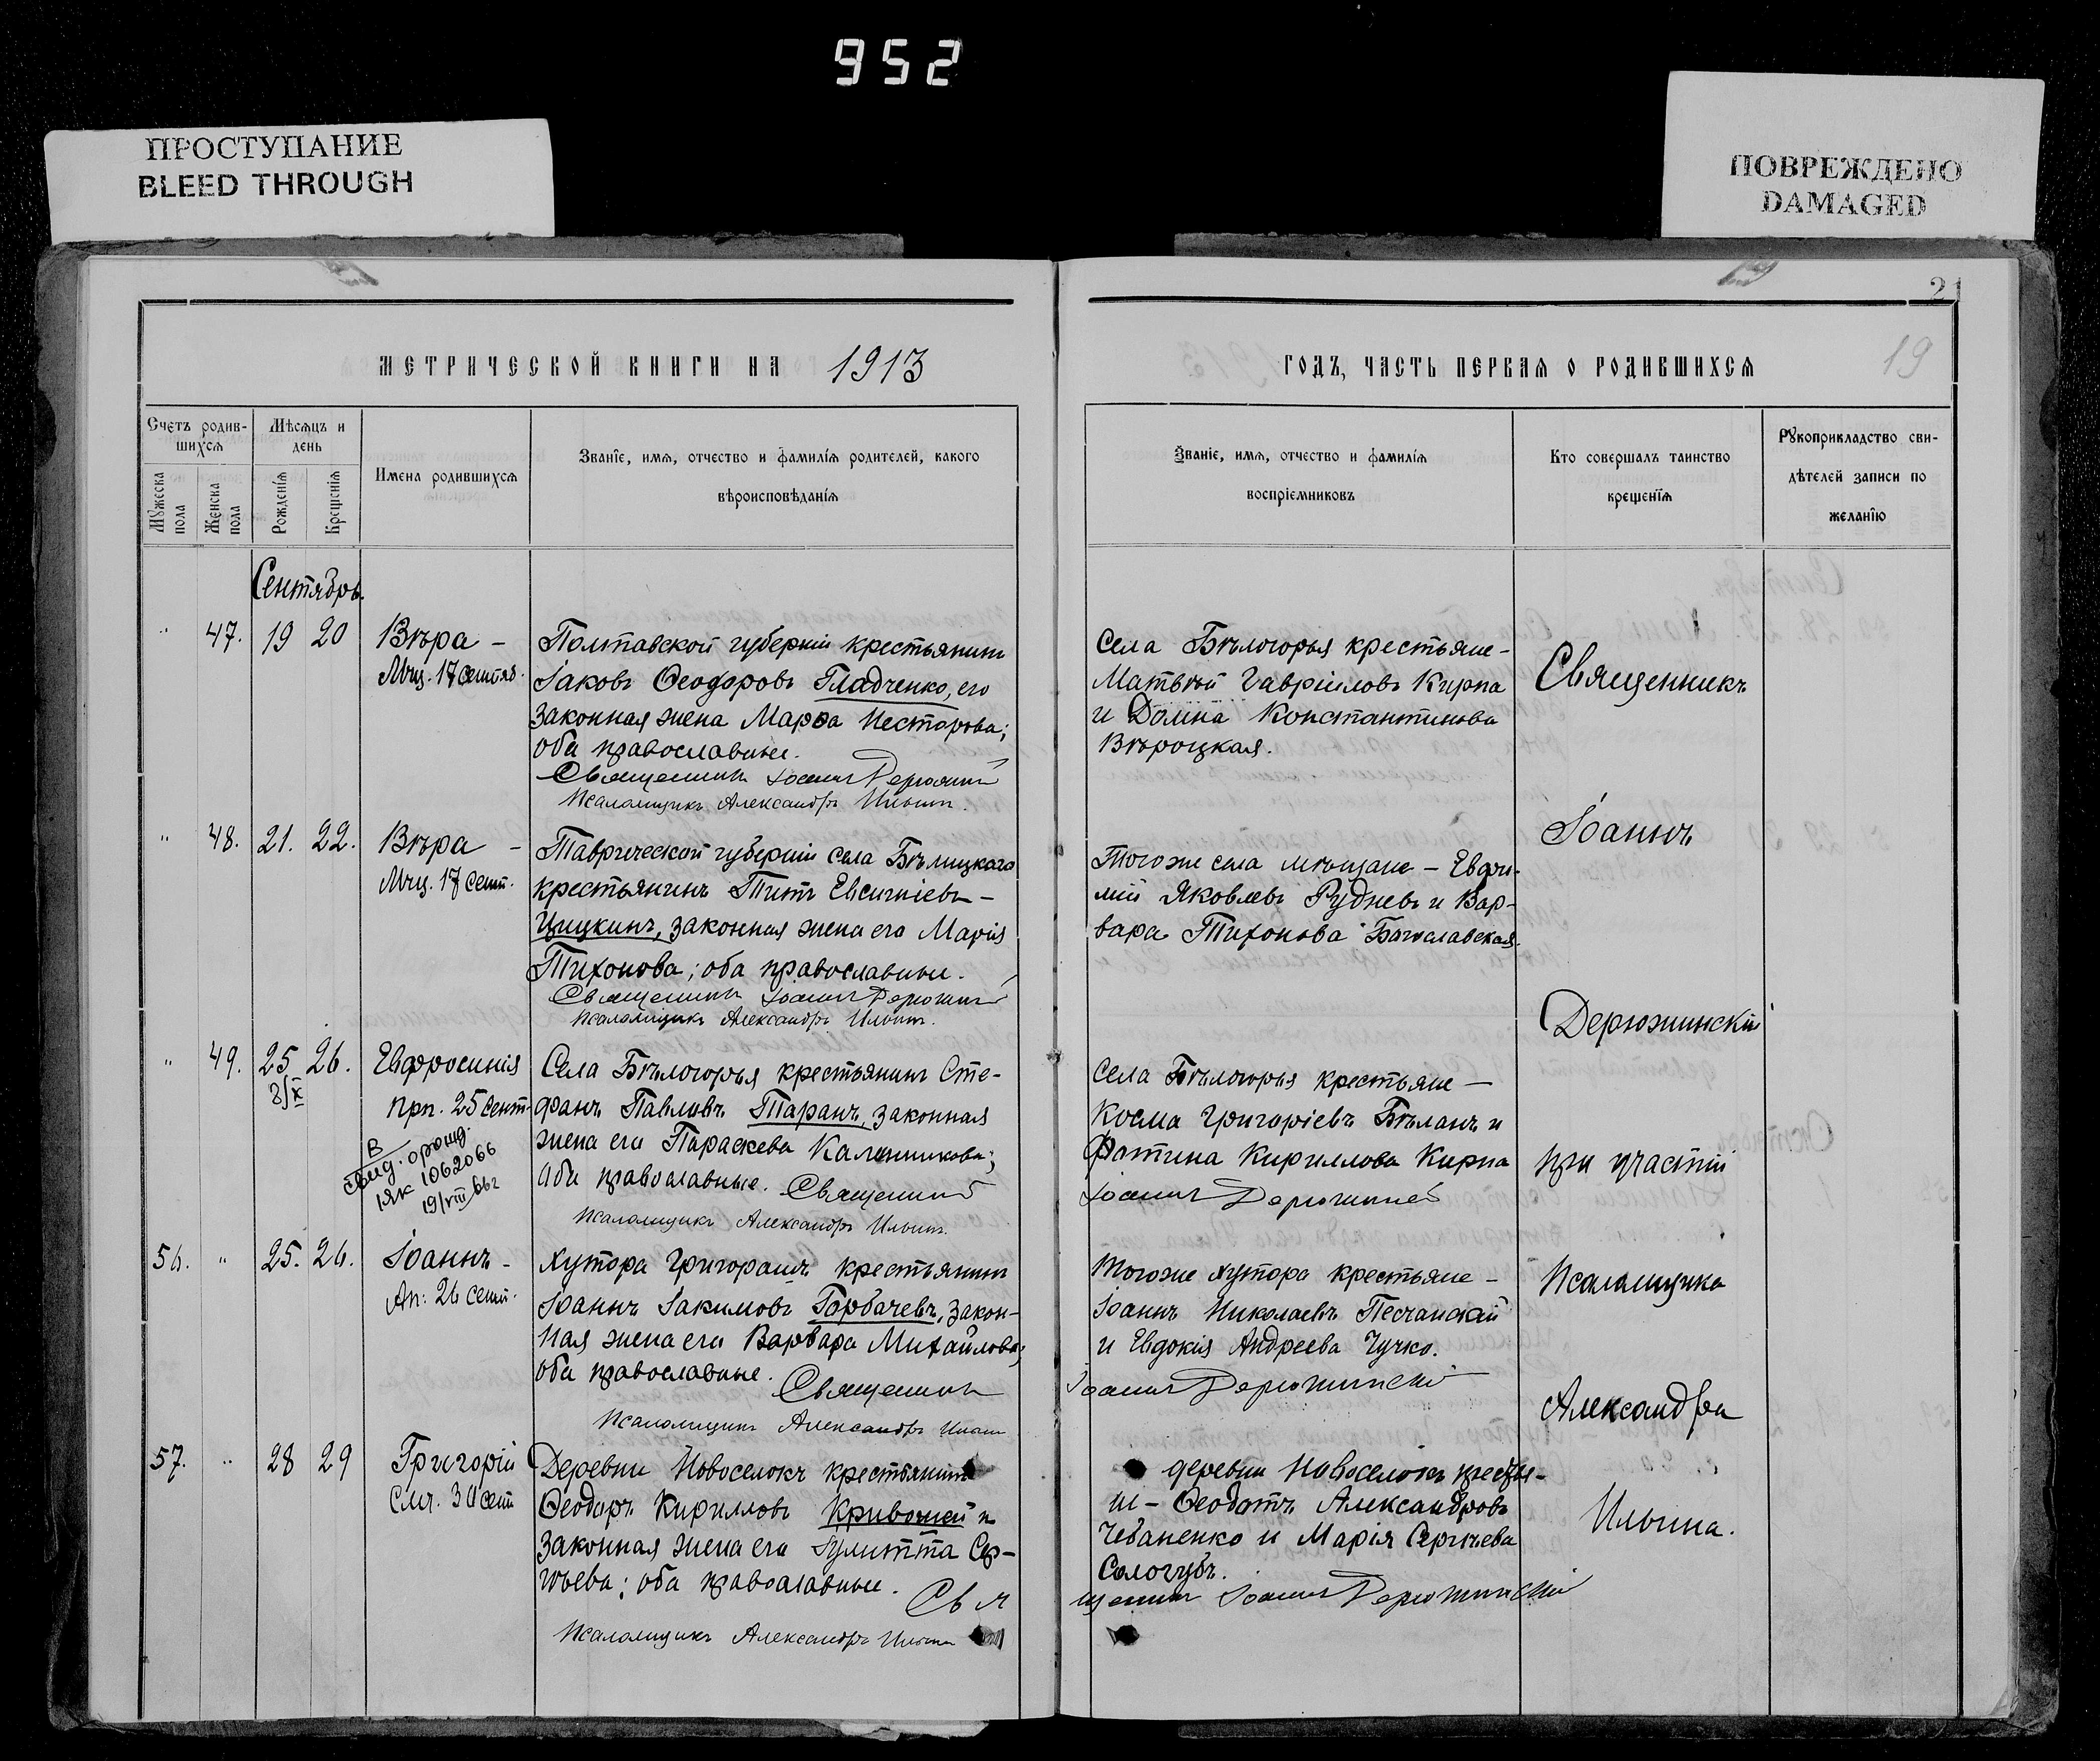 952
ПРОСТУПАНИЕ
BLEED THROUGH
ПОВРЕЖДЕНО
DAMAGED
21
19
МЕТРИЧЕСКОЙ КНИГИ НА 1913
ГОДЪ, ЧАСТЬ ПЕРВАЯ О РОДИВШИХСЯ
Счетъ родив-
шихся
Мѣсяцъ и
день
Мужеска
пола
Женска
пола
Рожденія
Крещенія
Имена родившихся
Званіе, имя, отчество и фамилія родителей, какого
вѣроисповѣданія
Званіе, имя, отчество и фамилія
воспріемниковъ
Кто совершалъ таинство
крещенія
Рукоприкладство сви-
дѣтелей записи по
желанію
Сентябрь.
" 47. 19 20 Вѣра –
Мчц. 17 сентяб.
Полтавской губерніи крестьянинъ
Іаковъ Ѳеодоровъ Гладченко, его
законная жена Марѳа Несторова;
оба православные.
Священникъ Іоаннъ
Псаломщикъ Александръ Ильинъ.
Села Бѣлогорья крестьяне –
Матѳей Гавріиловъ Кирпа
и Домна Константинова
Вѣроцкая.
" 48. 21. 22. Вѣра –
Мчц. 17 сент.
Таврической губерніи села Бѣлицкаго
крестьянинъ Титъ Евсигніевъ –
Цицкинъ, законная жена его Марія
Тихонова; оба православные.
Священникъ Іоаннъ
Псаломщикъ Александръ Ильинъ.
Тогоже села мѣщане – Евфи-
мій Яковлевъ Рудневъ и Вар-
вара Тихонова Богославская.
" 49. 25 26. Евфросинія
8/X
прп. 25 сент.
В
свид. о рожд.
IЯК 1062066
19/VIII 66г
Села Бѣлогорья крестьянинъ Сте-
фанъ Павловъ Таранъ, законная
жена его Параскева Калинникова;
оба православные. Священникъ
Псаломщикъ Александръ Ильинъ.
Села Бѣлогорья крестьяне –
Косма Григоріевъ Бѣланъ и
Фотина Кириллова Кирпа
Іоаннъ Дерюжинскій
56. " 25. 26. Іоаннъ –
Ап. 26 сент.
Хутора Григорашъ крестьянинъ
Іоаннъ Іакимовъ Горбачевъ, закон-
ная жена его Варвара Михайлова;
оба православные. Священникъ
Псаломщикъ Александръ Ильинъ
Тогоже хутора крестьяне –
Іоаннъ Николаевъ Песчанскій
и Евдокія Андреева Чучко.
Іоаннъ Дерюжинскій
57. " 28 29 Григорій
Смч. 30 сент
Деревни Новоселокъ крестьянинъ
Ѳеодоръ Кирилловъ и
законная жена его Іулитта Сер-
гіева; оба православные. Свя
Псаломщикъ Александръ Ильинъ
деревни Новоселокъ
Ѳеодотъ Александровъ
Чебаненко и Марія Сергѣева
Сологубъ.
щенникъ Іоаннъ Дерюжинскій
Священникъ
Іоаннъ
Дерюжинскій
при участіи
Псаломщика
Александра
Ильина.